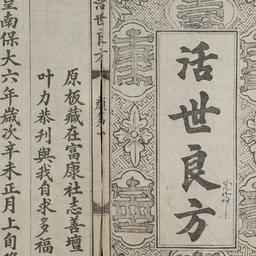 活世良方
活世良方
原板藏在富康社志善壇
叶力恭刊與我自求多福
皇南保大六年歲次辛未正月上旬